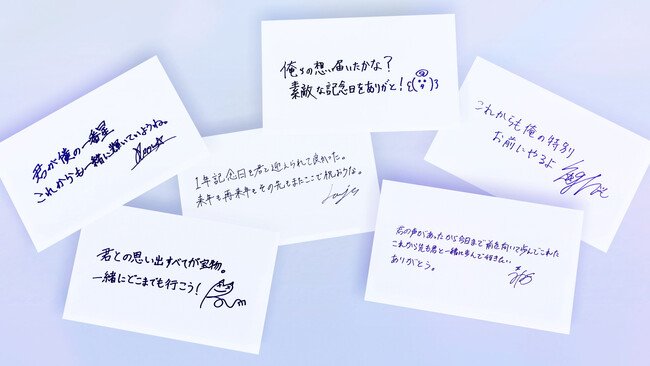 俺らの想い届いたかな？
素敵な記念日をありがと！
君が僕の一番星
これからも一緒に輝いていようね。
これからも俺の特別
お前にやるよ
1年記念日を君と迎えられて良かった。
来年も再来年もその先もまたここで祝おうな。
君との思い出すべてが宝物。
一緒にどこまでも行こう！
君の声があったから今日まで前を向いて歩んでこれた
これから先も君と一緒に歩んで行きたい
ありがとう。